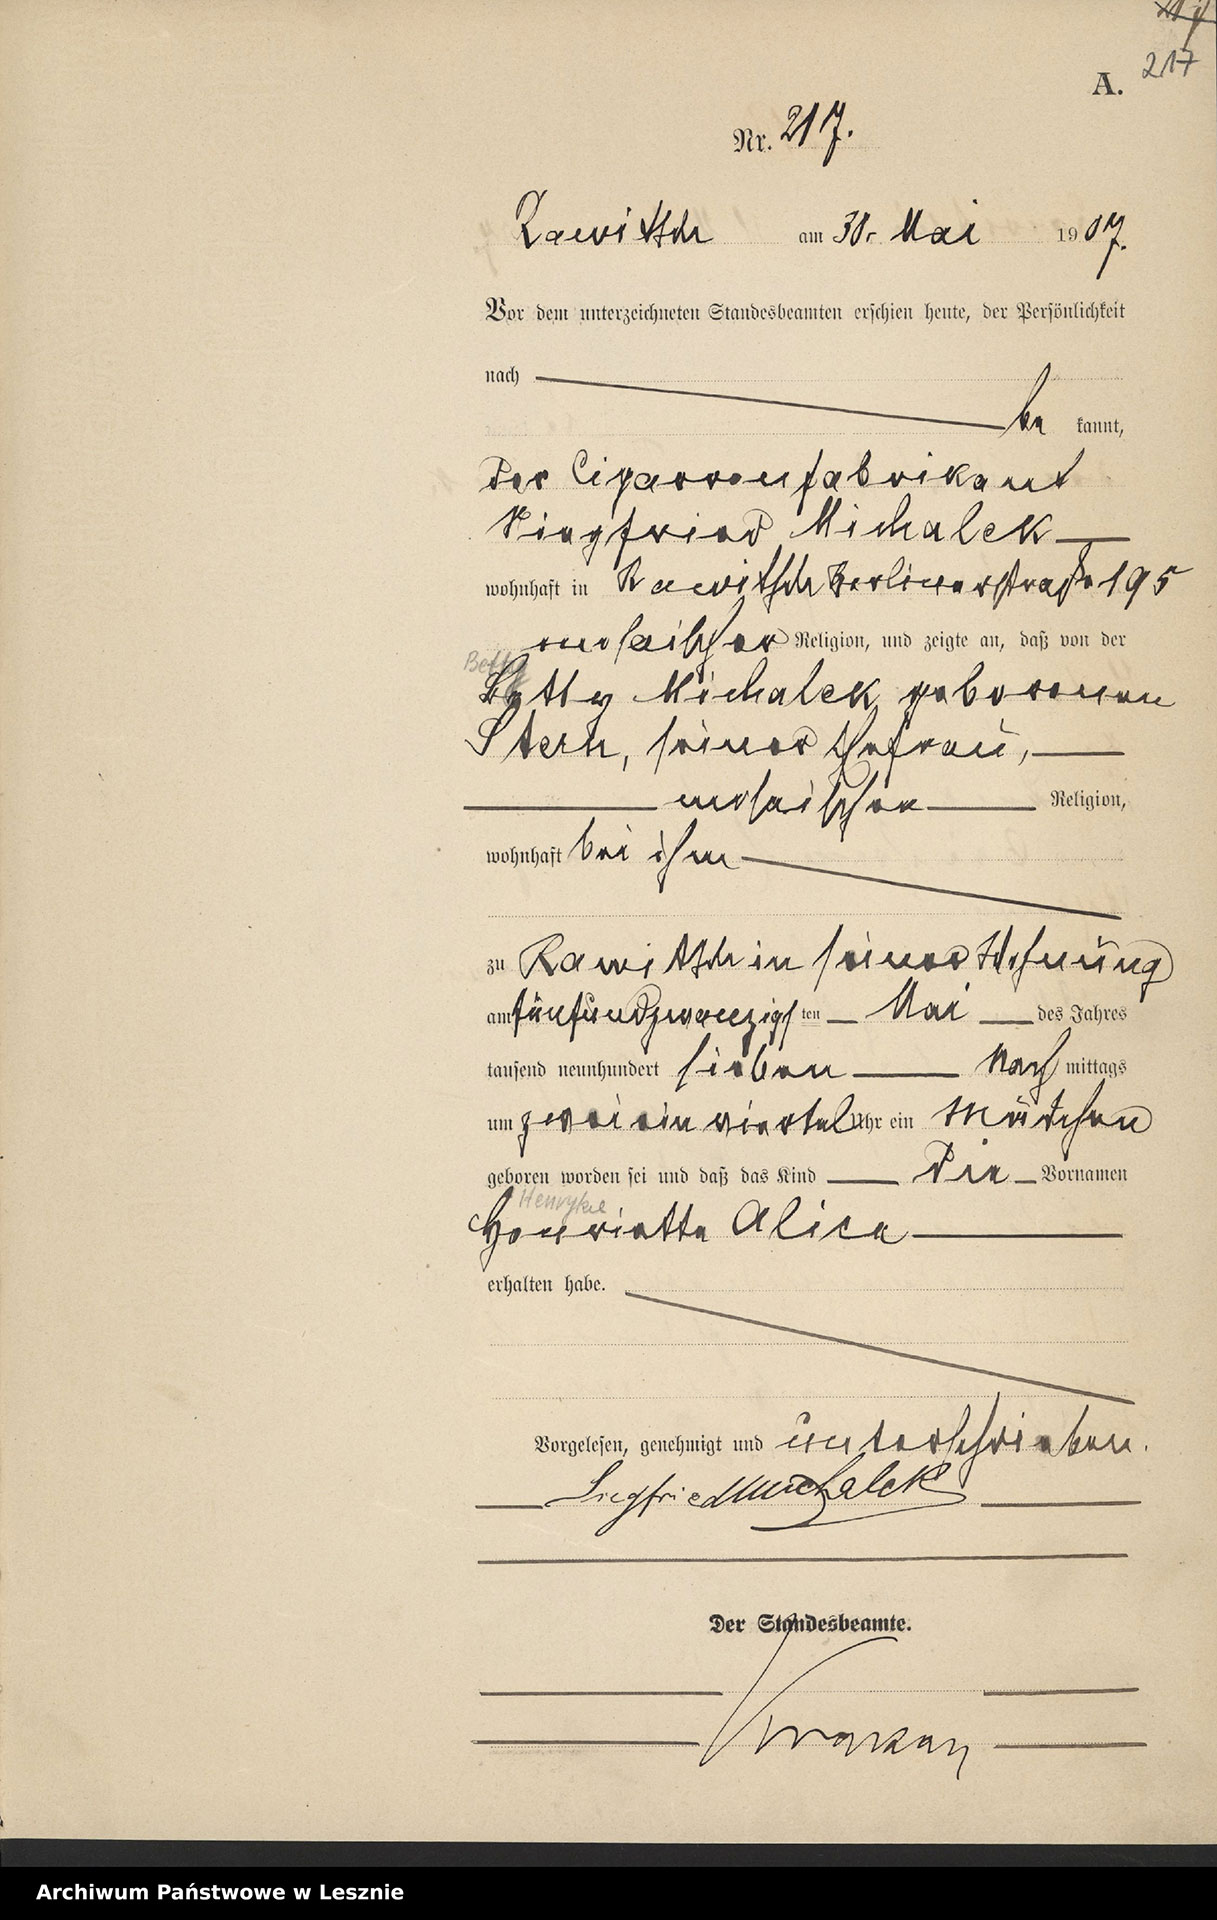 217
A.
Nr. 217.
Rawitsch am 30. Mai 1907.
Vor dem unterzeichneten Standesbeamten erschien heute, der Persönlichkeit
nach
be kannt,
der Cigarrenfabrikant
Siegfried Michalek
wohnhaft in Rawitsch Berlinerstraße 195
mosaischer Religion, und zeigte an, daß von der
Betty
Betty Michalek geborenen
Stern, seiner Ehefrau,
mosaischer Religion,
wohnhaft bei ihm
zu Rawitsch in seiner Wohnung
am fünfundzwanzigsten Mai des Jahres
tausend neunhundert sieben Nachmittags
um zwei ein viertel Uhr ein Mädchen
geboren worden sei und daß das Kind die Vornamen
Henryka
Henriette Alice
erhalten habe.
Vorgelesen, genehmigt und unterschrieben.
Siegfried Michalek
Der Standesbeamte.
Archiwum Państwowe w Lesznie